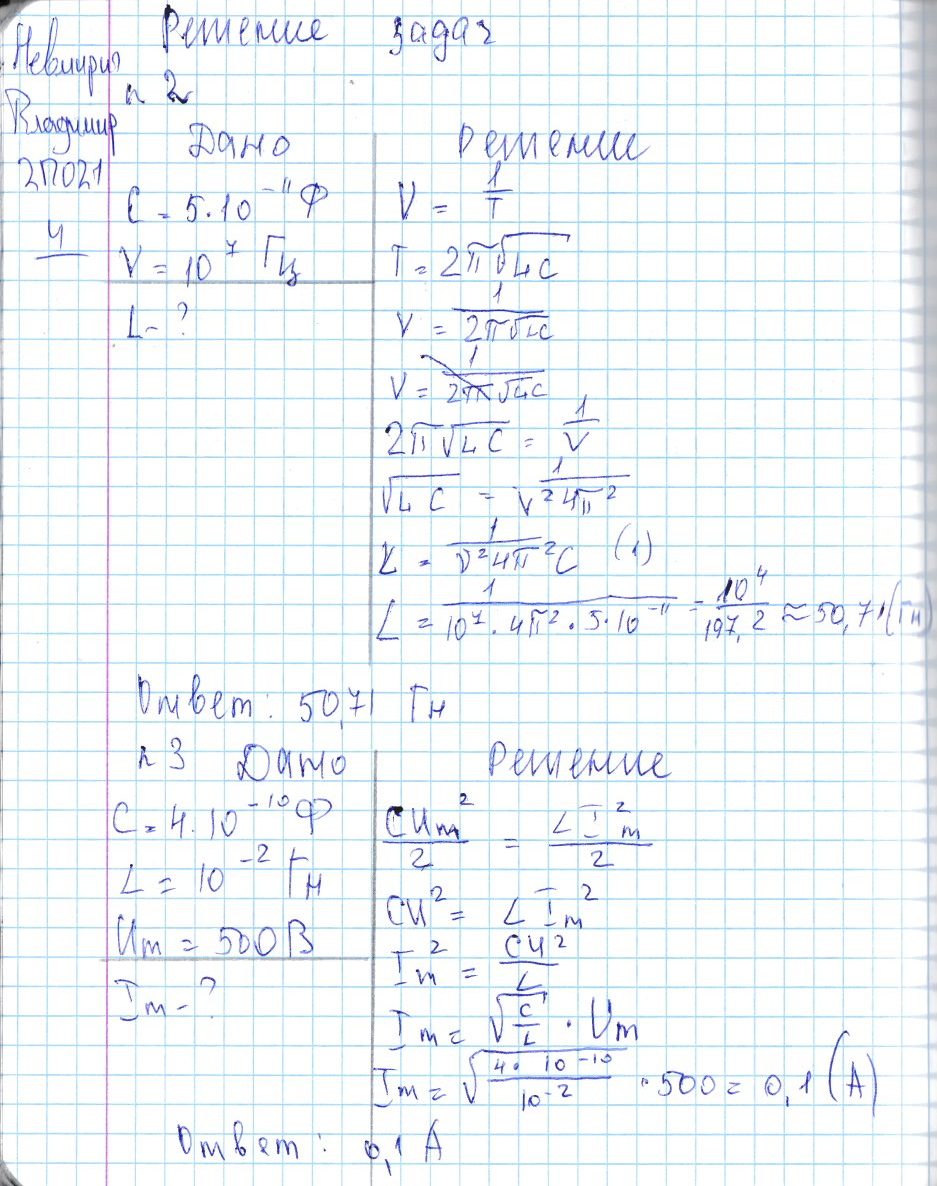 Решение задач
Невмирич
Владимир
2П021
4
n 2
Дано
C = 5·10⁻¹¹ Ф
V = 10⁷ Гц
L - ?
Решение
V = 1/T
T = 2π√LC
V = 1/(2π√LC)
V = 1/(2π√LC)
2π√LC = 1/V
√LC = 1/(V²4π²)
L = 1/(V²4π²C) (1)
L = 1/(10⁷·4π²·5·10⁻¹¹) = 10⁴/197,2 ≈ 50,71 (Гн)
Ответ: 50,71 Гн
n 3 Дано
C = 4·10⁻¹⁰ Ф
L = 10⁻² Гн
Um = 500 В
Im - ?
Решение
CUm²/2 = LI²m/2
CU² = LIm²
Im² = CU²/L
Im = √(C/L) · Um
Im = √(4·10⁻¹⁰/10⁻²) · 500 = 0,1 (А)
Ответ: 0,1 А